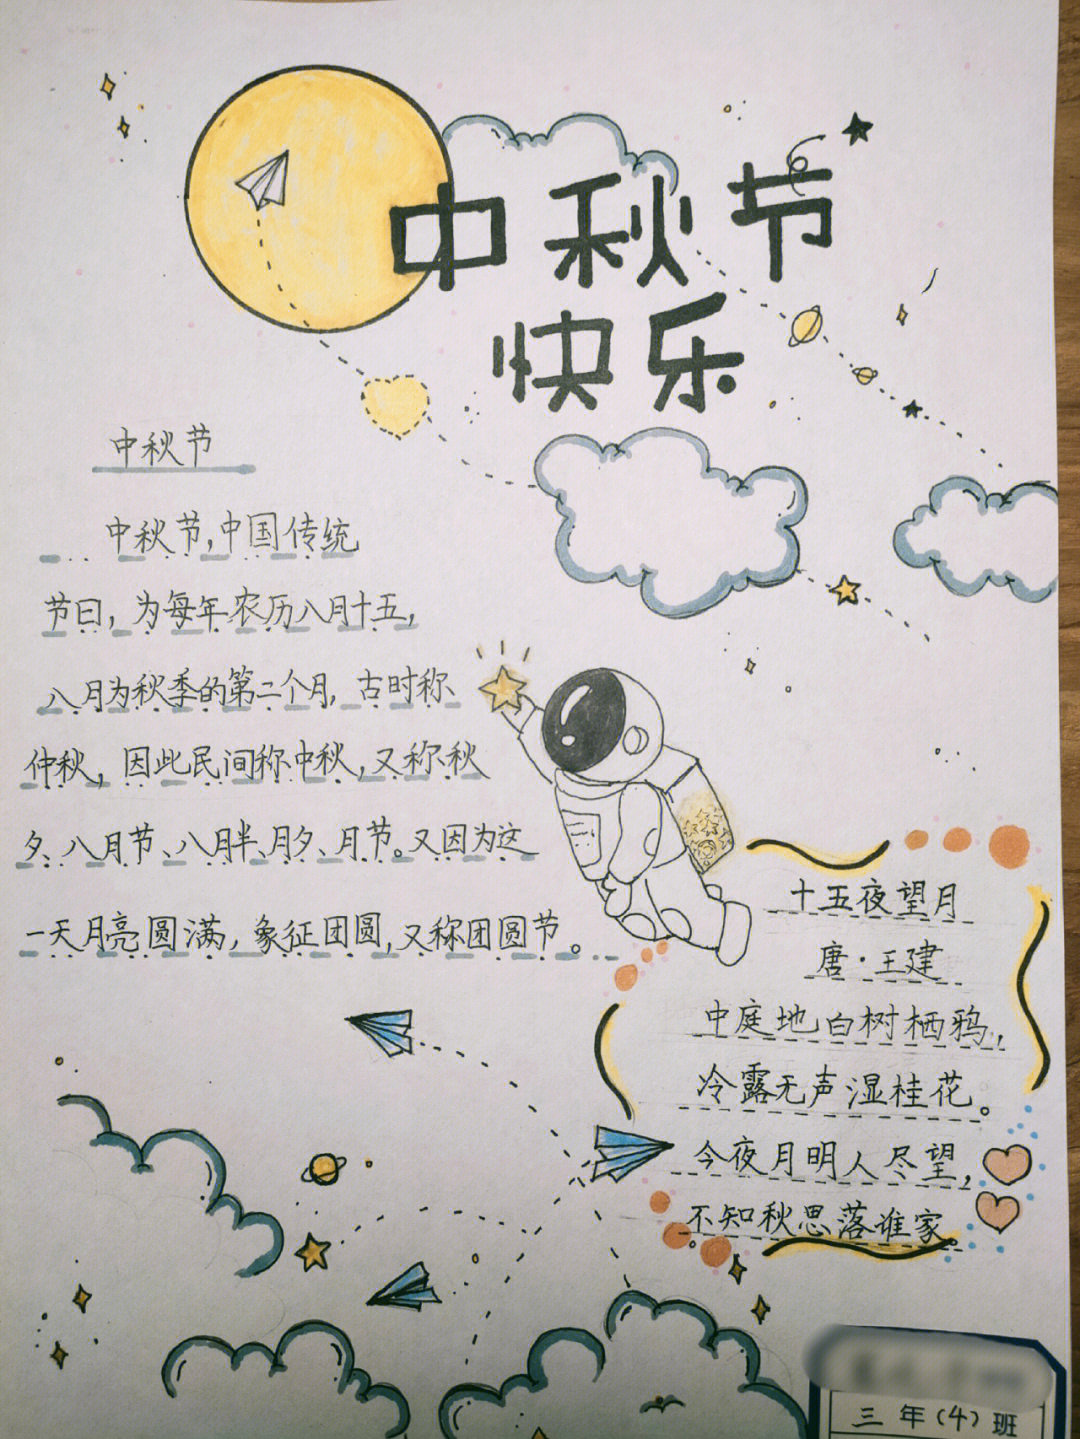 中秋节
快乐
中秋节
中秋节,中国传统
节日，为每年农历八月十五，
八月为秋季的第二个月，古时称
仲秋，因此民间称中秋，又称秋
夕、八月节、八月半、月夕、月节。又因为这
一天月亮圆满，象征团圆，又称团圆节。
十五夜望月
唐·王建
中庭地白树栖鸦，
冷露无声湿桂花。
今夜月明人尽望，
不知秋思落谁家。
三年(4)班